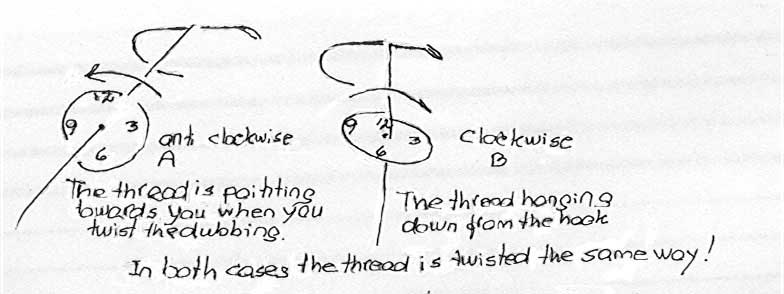 12
9 3
6
anti clockwise
A
The thread is pointing
towards you when you
twist the dubbing.
12
9 3
6
Clockwise
B
The thread hanging
down from the hook
In both cases the thread is twisted the same way!